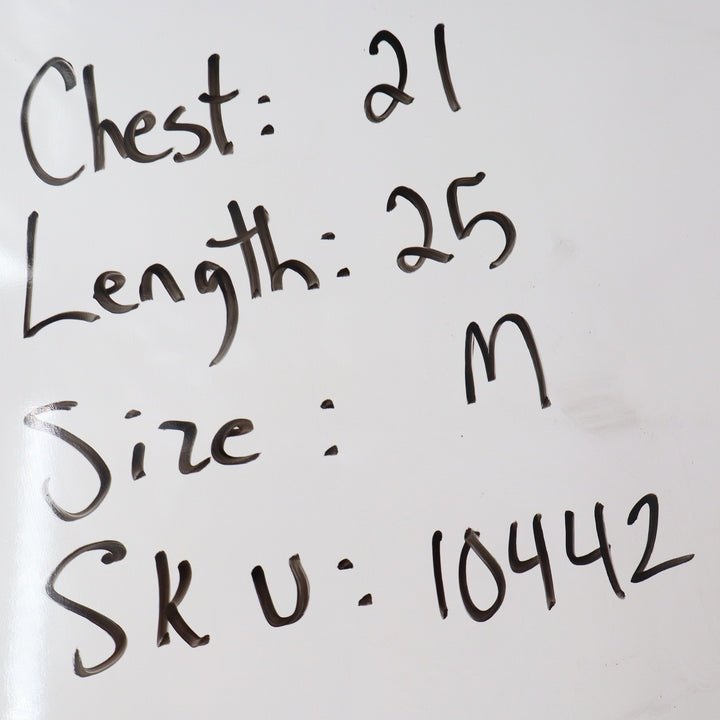 Chest: 21
Length: 25
Size: M
SKU: 10442